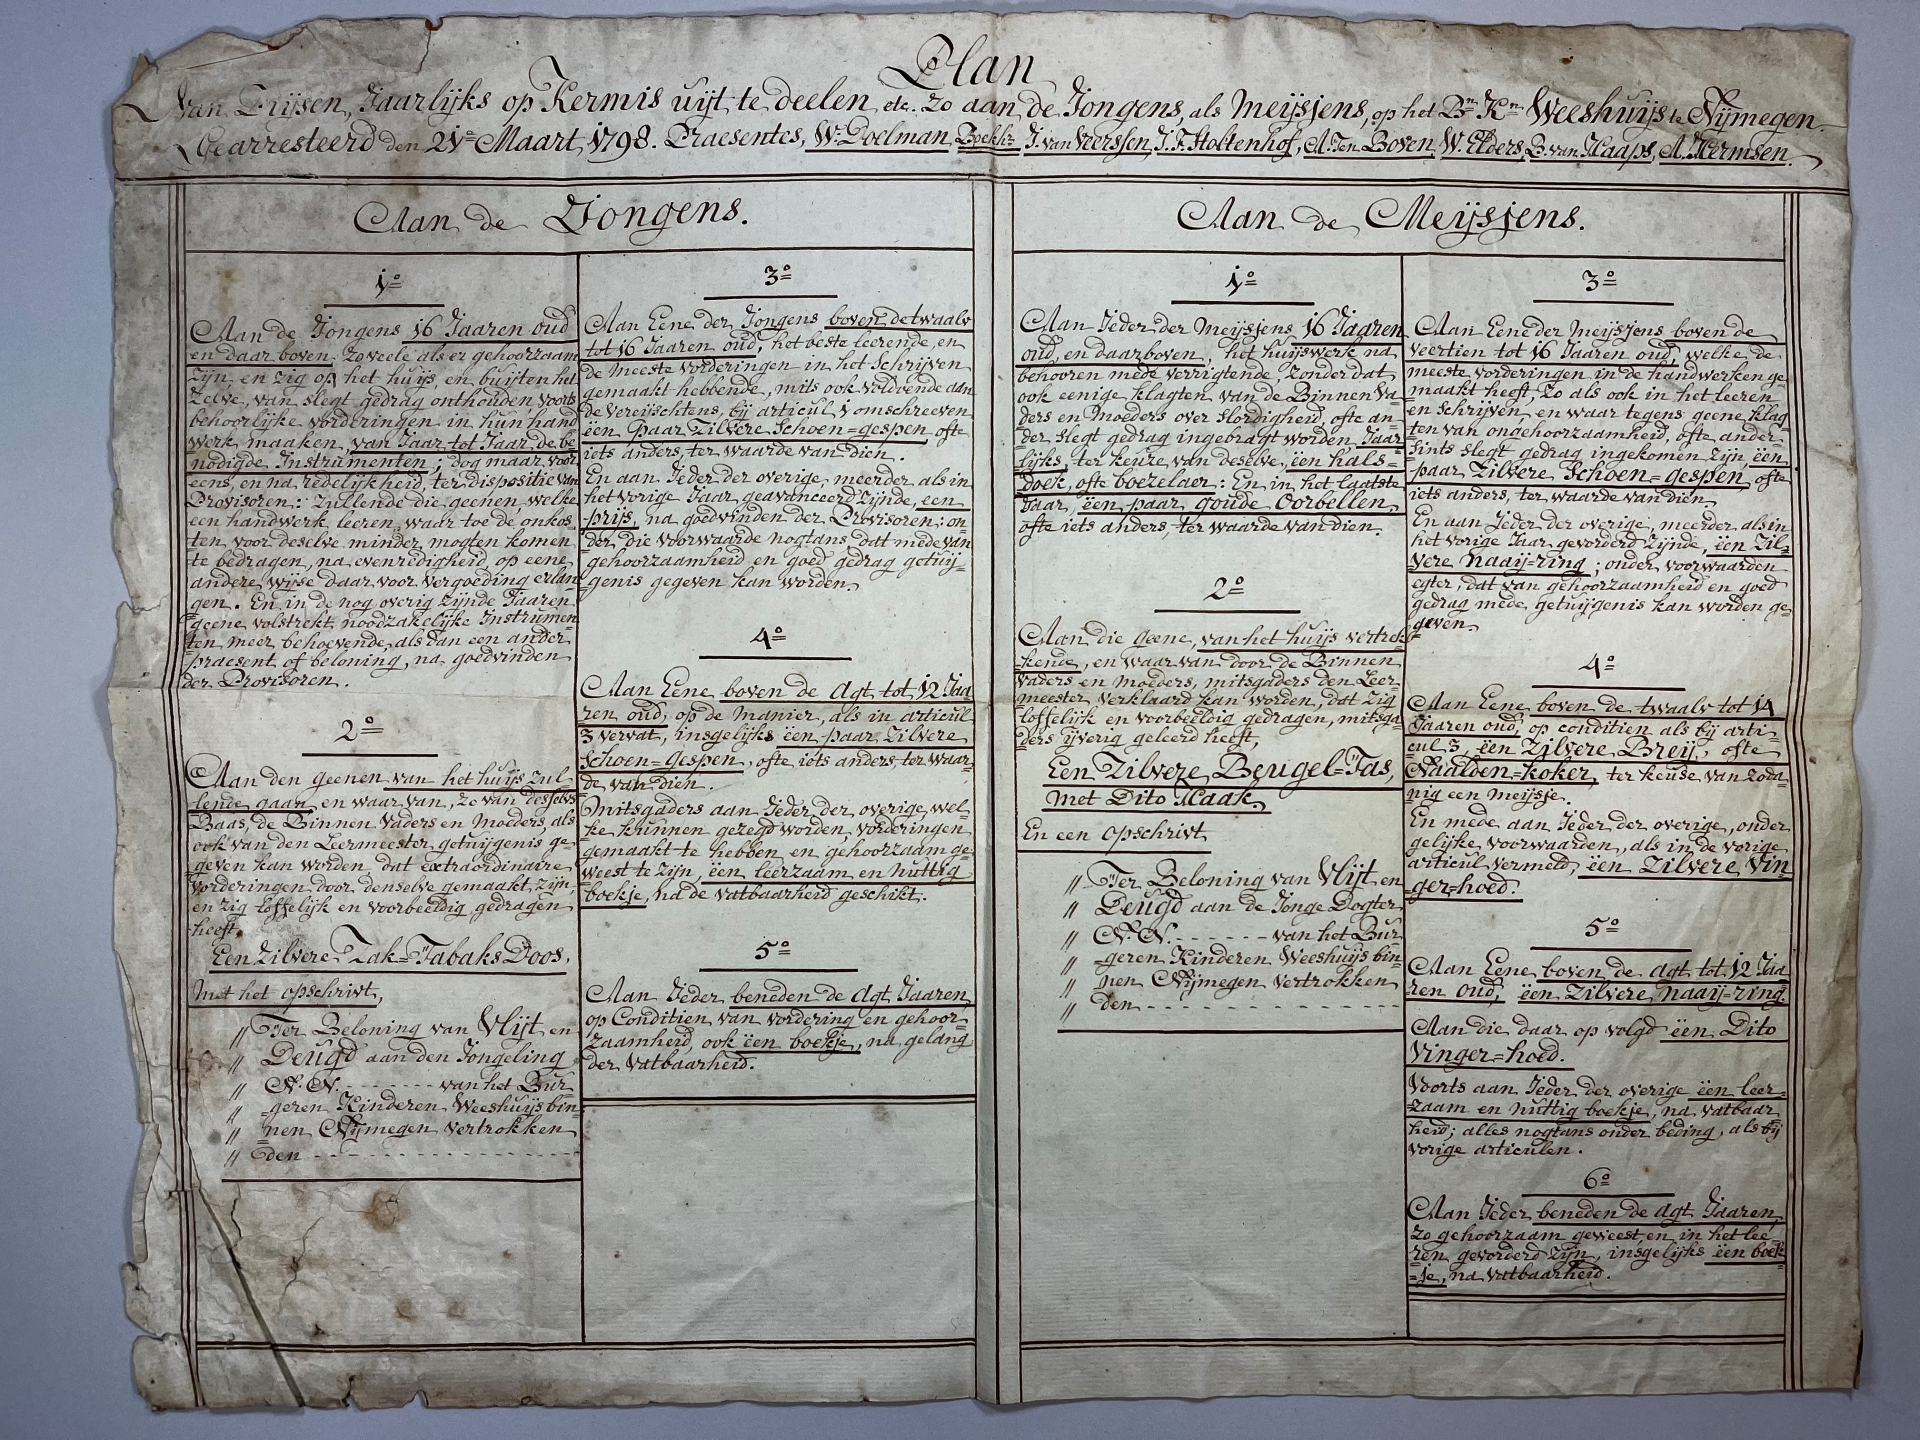 Plan
Van Prijsen, Jaarlijks op Kermis uijt te deelen etc. zo aan de Jongens, als Meijsjens, op het Brn Krn Weeshuijs te Nijmegen.
Gearresteerd den 21e Maart 1798. Praesentes, W. Doelman Boekhr J. van Veerssen, J. F. Holtenhof, A. Ten Boven, W. Elders, B. van Haaps, A. Hermsen.
Aan de Jongens.
1o
Aan de Jongens 16 Jaaren oud
en daar boven: zoveele als er gehoorzaam
zijn, en zig op het huijs, en buijten het
zelve, van slegt gedrag onthouden, voorts
behoorlijke vorderingen in hun hand
werk maaken, van Jaar tot Jaar de be
nodigde Instrumenten; dog maar voor
eens, en na redelijkheid, ter dispositie van
Provisoren: Zullende die geenen, welke
een handwerk leeren, waar toe de onkos
ten voor deselve minder mogten komen
te bedragen, na evenredigheid, op eene
andere wijse daar voor vergoeding erlan
gen. En in de nog overig zijnde Jaaren
geene volstrekt noodzakelijke Instrumen
ten meer behoevende, als dan een ander
praesent of beloning, na goedvinden
der Provisoren.
2o
Aan den geenen van het huijs zul-
lende gaan en waar van, ze van desselvs
Baas, de Binnen Vaders en Moeders, als
ook van den Leermeester getuijgenis ge-
geven kan worden dat extraordinaire
vorderingen door denselve gemaakt zijn,
en zig loffelijk en voorbeeldig gedragen
heeft.
Een Zilvere Zak=Tabaks Doos,
Met het opschrivt,
" Ter Beloning van Vlijt en
" Deugd aan den Jongeling
" N. N. - - - - - - - van het Bur
" geren Kinderen Weeshuijs bin=
" nen Nijmegen vertrokken
" den - - - - - - - - - - - - - - - -
3o
Aan Eene der Jongens boven de twaalv
tot 16 Jaaren oud, het beste leerende, en
de meeste vorderingen in het Schrijven
gemaakt hebbende, mits ook voldoende aan
de vereijschtens, bij articul 1 omschreeven
ëen paar Zilvere Schoen=gespen ofte
iets anders, ter waarde van dien.
En aan Jeder der overige, meerder als in
het vorige Jaar geavanceerd zijnde, een
prijs, na goedvinden der Provisoren: on
der die voorwaarde nogtans dat mede van
gehoorzaamheid en goed gedrag getuij-
genis gegeven kan worden.
4o
Aan Eene boven de Agt tot 12 Jaa
ren oud, op de manier, als in articul
3 vervat, insgelijks ëen paar Zilvere
Schoen=gespen, ofte iets anders ter waar-
de van dien.
Mitsgaders aan Jeder der overige, wel-
ke kunnen gezegd worden, vorderingen
gemaakt te hebben en gehoorzaam ge-
weest te zijn, ëen leerzaam en nuttig
boekje, na de vatbaarheid geschikt.
5o
Aan Jeder beneden de Agt Jaaren
op Conditien van vordering en gehoor-
zaamheid, ook ëen boekje, na gelang
der vatbaarheid.
Aan de Meijsjens.
1o
Aan Jeder der Meijsjens 16 Jaaren
oud, en daarboven, het huijswerk na
behooren mede verrigtende, zonder dat
ook eenige klagten van de Binnen Va-
ders en Moeders over slordigheid ofte an-
der slegt gedrag ingebragt worden Jaar
lijks, ter keuze van deselve, ëen hals=
doek, ofte boezelaer: En in het laatste
Jaar, ëen paar goude Oorbellen,
ofte iets anders, ter waarde van dien.
2o
Aan die geene, van het huijs vertrek
kende, en waar van door de Binnen
Vaders en Moeders, mitsgaders den Leer
meester verklaard kan worden, dat zig
loffelijk en voorbeeldig gedragen, mitsga
ders ijverig geleerd heeft,
Een Zilvere Beugel=Tas,
Met Dito Haak.
En een opschrivt
" Ter Beloning van Vlijt en
" Deugd aan de Jonge Dogter
" N. N. - - - - - - - van het Bur
" geren Kinderen Weeshuijs bin=
" nen Nijmegen vertrokken
" den - - - - - - - - - - - - - - - -
3o
Aan Eene der Meijsjens boven de
veertien tot 16 Jaaren oud, welke de
meeste vorderingen in de handwerken ge
maakt heeft, zo als ook in het leeren
en schrijven, en waar tegens geene klag
ten van ongehoorzaamheid, ofte ander
sints slegt gedrag ingekomen zijn, ëen
paar Zilvere Schoen=gespen ofte
iets anders, ter waarde van dien.
En aan Jeder der overige, meerder als in
het vorige Jaar gevorderd zijnde, ëen Zil=
vere naaij=ring; onder voorwaarden
egter, dat van gehoorzaamheid en goed
gedrag mede getuijgenis kan worden ge
geven.
4o
Aan Eene boven de twaalv tot 14
Jaaren oud, op conditien als bij arti-
cul 3, ëen Zilvere Breij, ofte
Naalden=koker, ter keuse van zoda
nig een meijsje.
En mede aan Jeder der overige, onder
gelijke voorwaarden, als in de vorige
articul vermeld, ëen Zilvere Vin
ger=hoed.
5o
Aan Eene boven de Agt tot 12 Jaa
ren oud, ëen Zilvere naaij=ring.
Aan die daar op volgd ëen Dito
Vinger=hoed.
Voorts aan Jeder der overige ëen leer-
zaam en nuttig boekje, na vatbaar
heid; alles nogtans onder beding, als bij
vorige articulen.
6o
Aan Jeder beneden de Agt Jaaren,
zo gehoorzaam geweest, en in het lee
ren gevorderd zijn, insgelijks ëen boek
=je, na vatbaarheid.